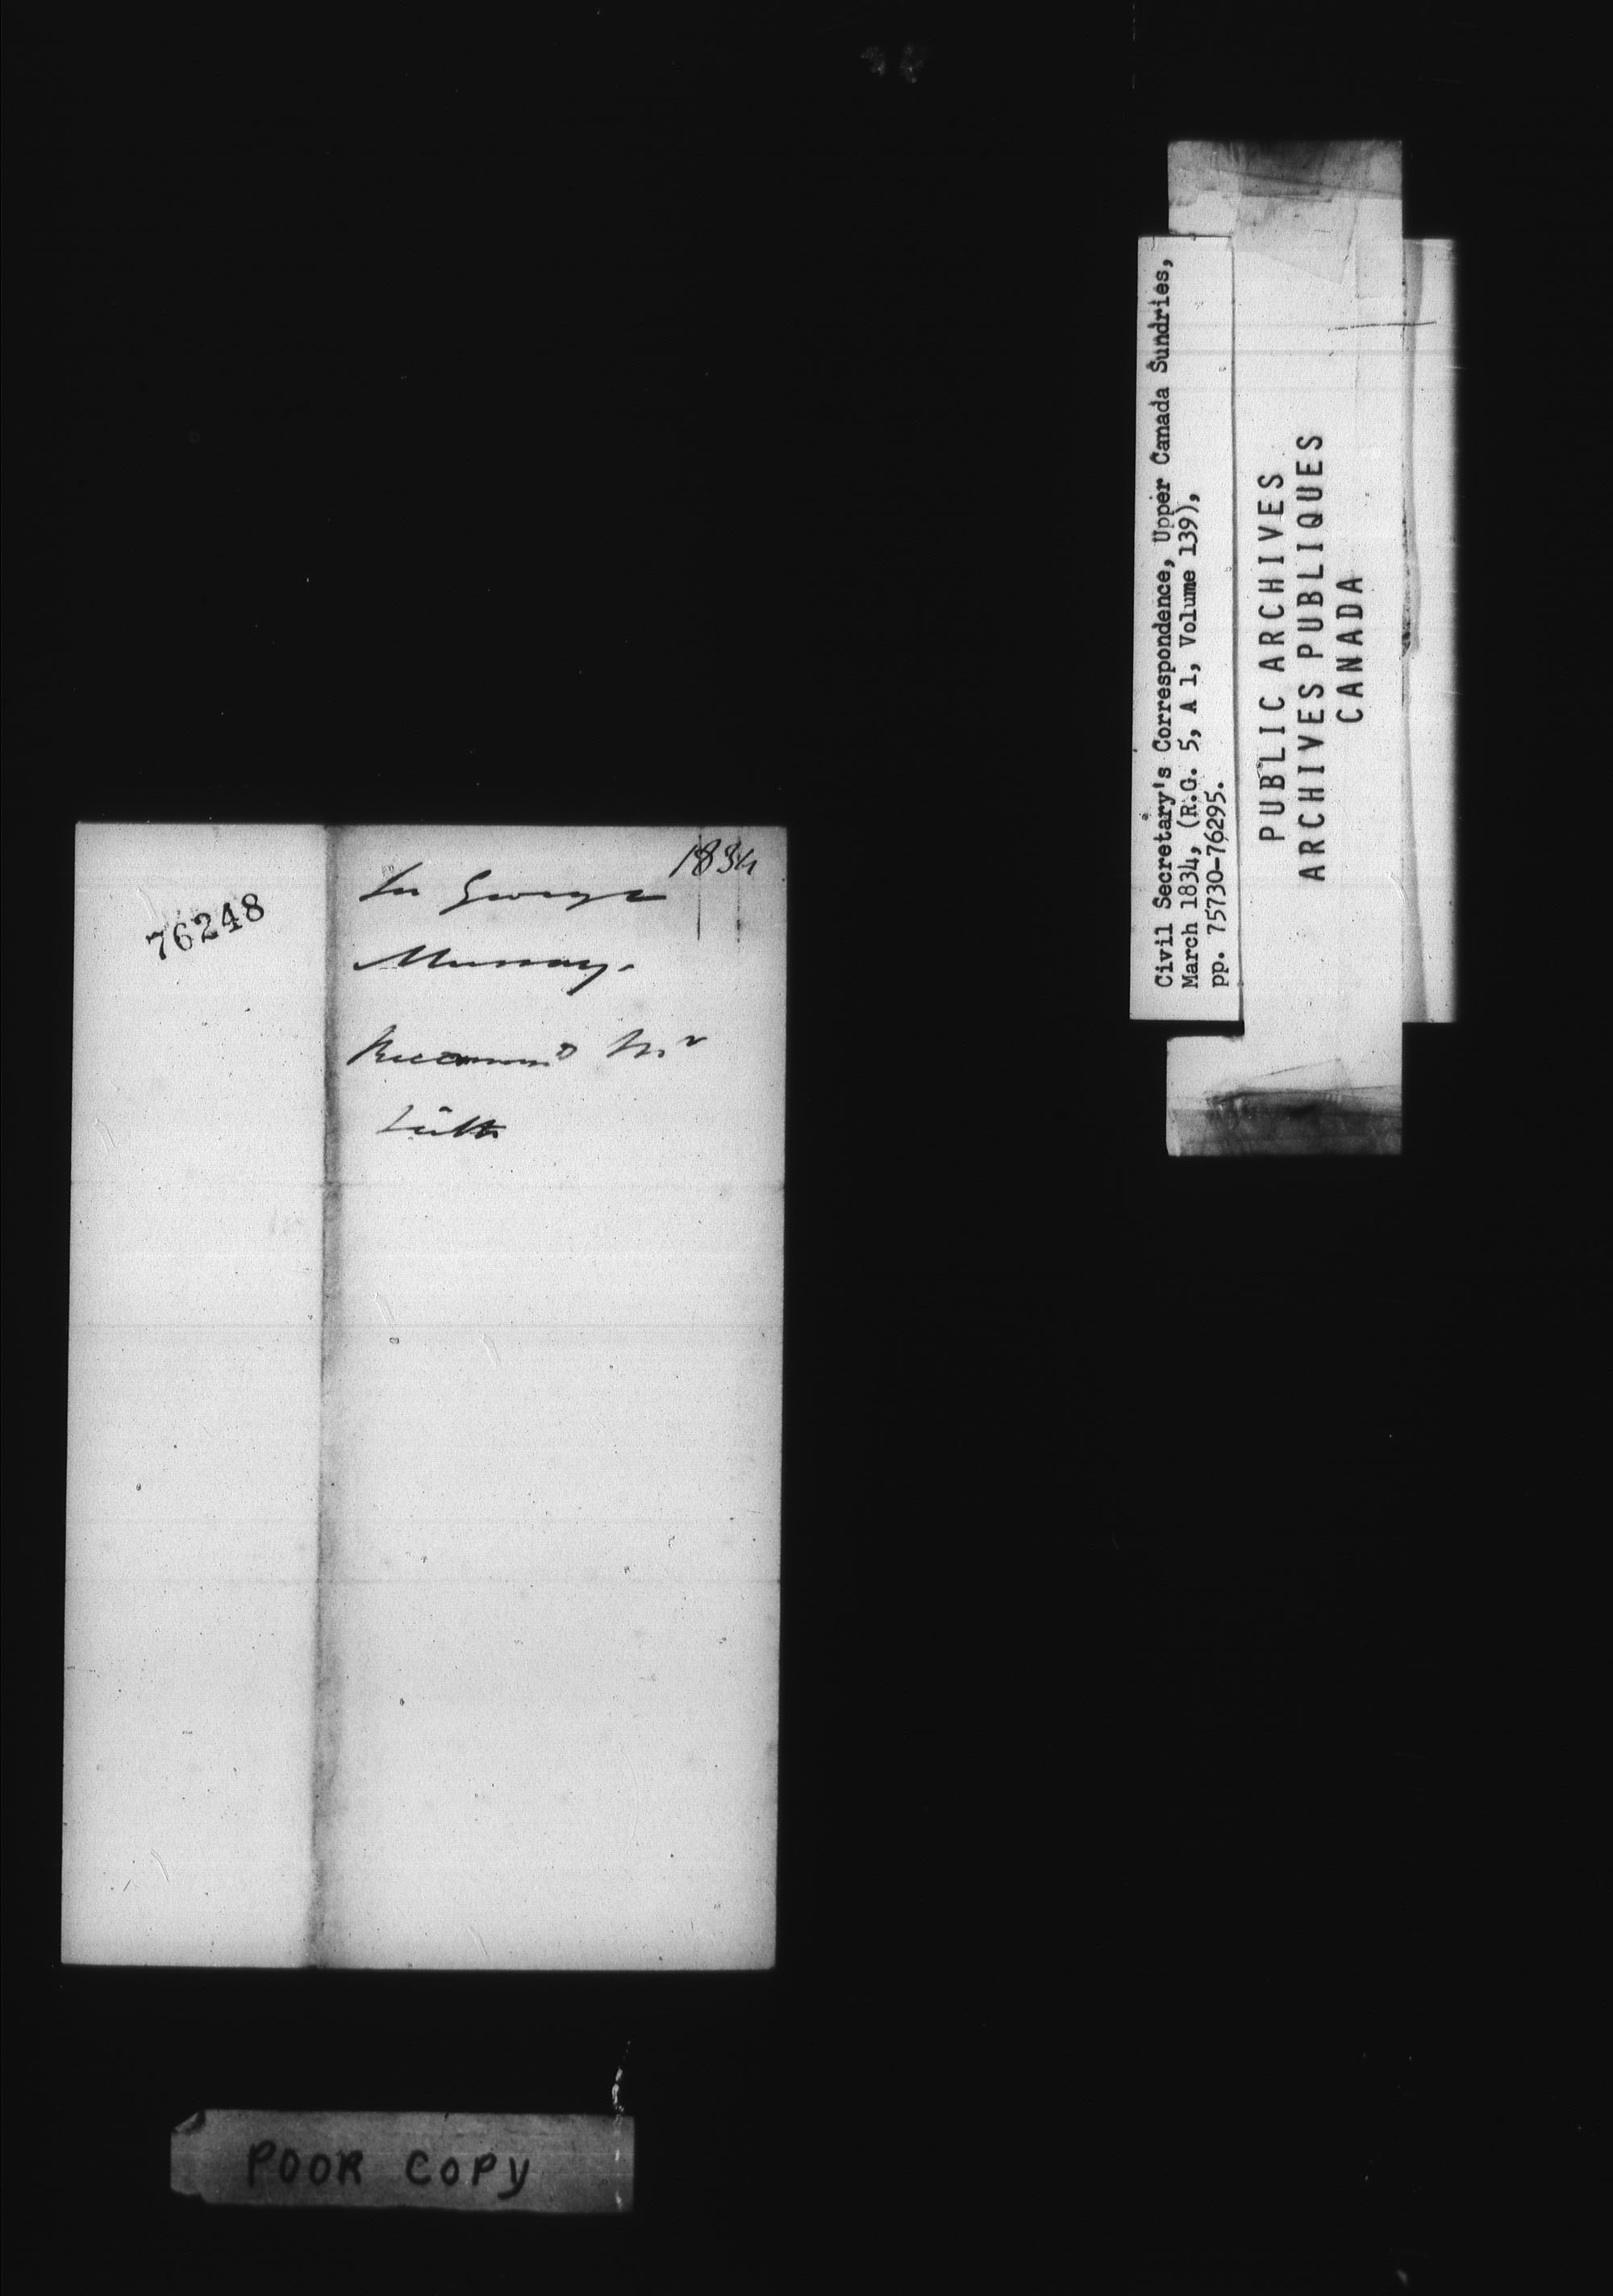 1834
Sir George
Murray.
Recommd Mr
76248
Civil Secretary's Correspondence, Upper Canada Sundries,
March 1834, (R.G. 5, A 1, Volume 139),
pp. 75730-76295.
PUBLIC ARCHIVES
ARCHIVES PUBLIQUES
CANADA
POOR COPY